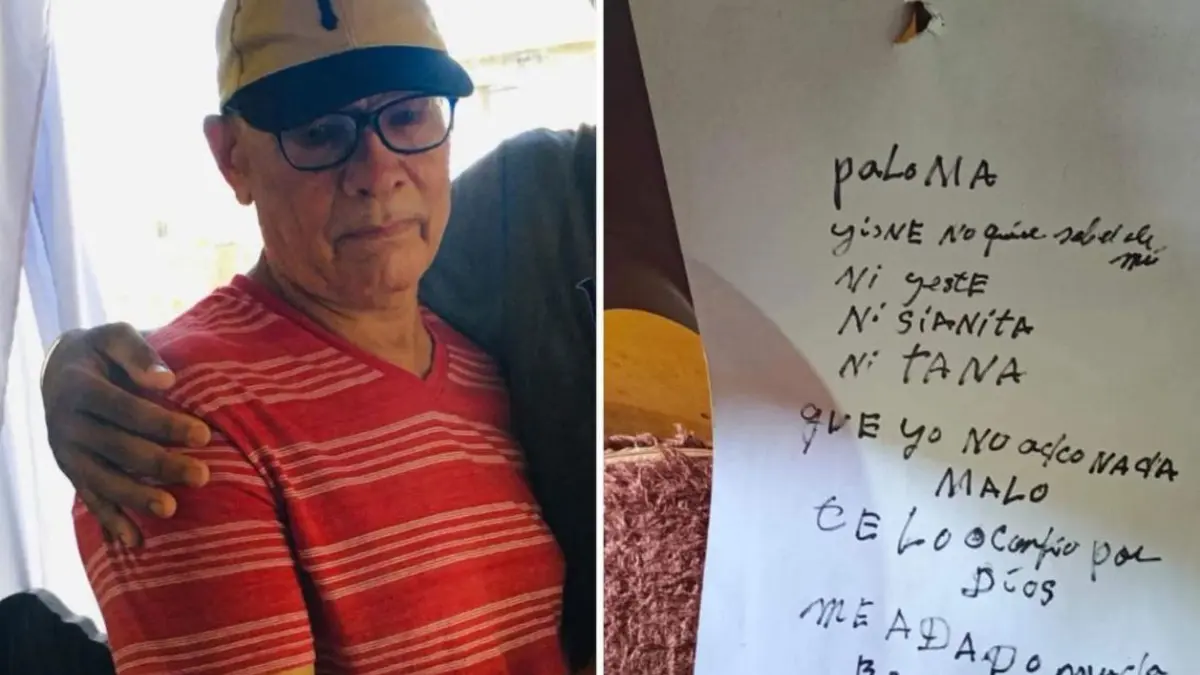 paloMA
yisNE No quiere saber de
mi
Ni yeste
Ni SiANitA
Ni TANA
qUE yo NO adco NAdA
MALO
CE LO o confio por
Dios
ME ADADO